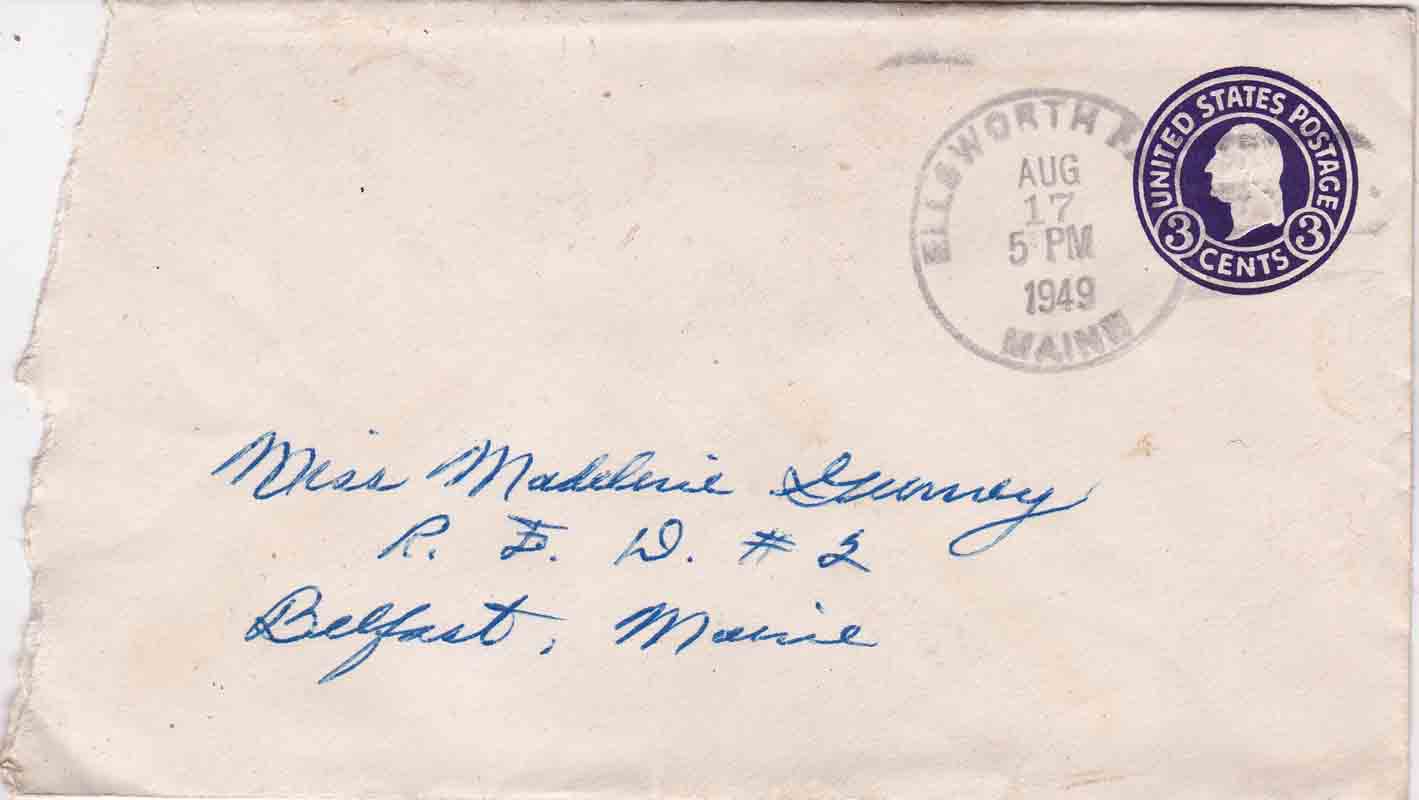 ELLSWORTH
AUG
17
5 PM
1949
MAINE
UNITED STATES POSTAGE
3 CENTS 3
Miss Madeline Gurney
R. F. D. # 2
Belfast, Maine